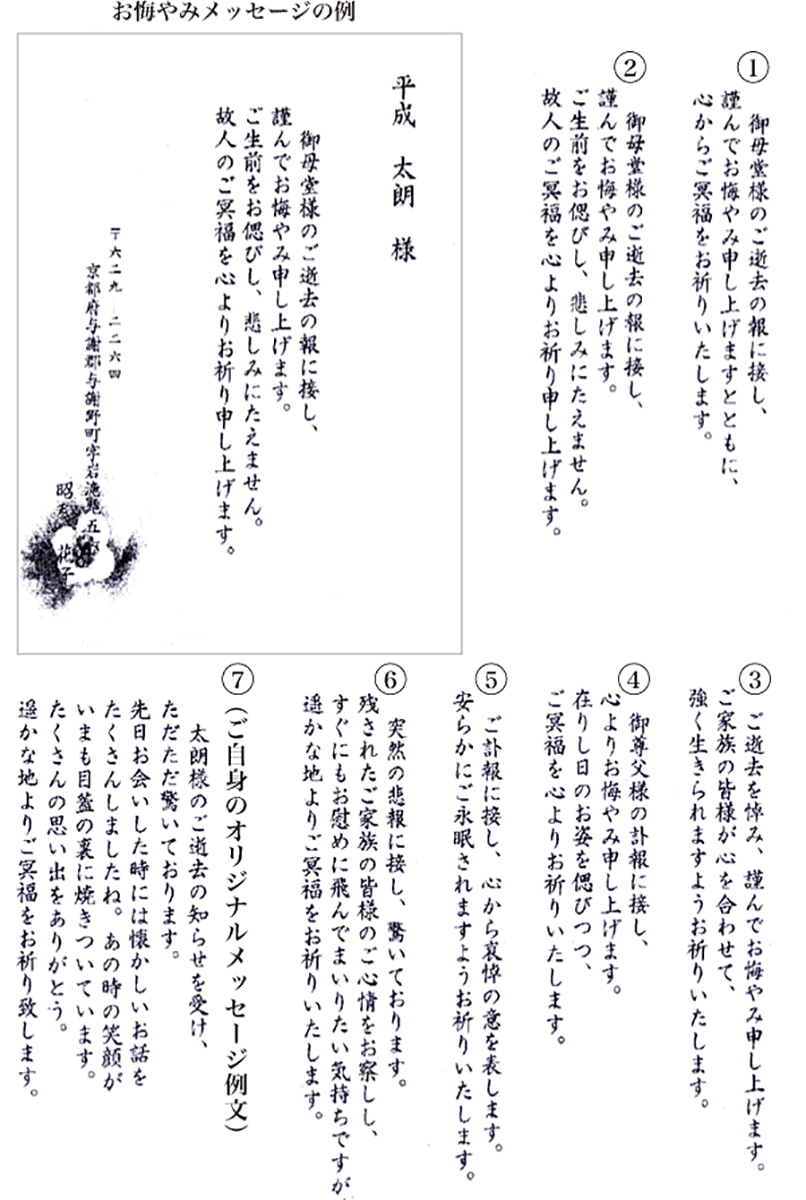 お悔やみメッセージの例
平成　太朗　様
御母堂様のご逝去の報に接し、
謹んでお悔やみ申し上げます。
ご生前をお偲びし、悲しみにたえません。
故人のご冥福を心よりお祈り申し上げます。
〒六二九ー二二六四
京都府与謝郡与謝野町字岩滝
五
花子
①
御母堂様のご逝去の報に接し、
謹んでお悔やみ申し上げますとともに、
心からご冥福をお祈りいたします。
②
御母堂様のご逝去の報に接し、
謹んでお悔やみ申し上げます。
ご生前をお偲びし、悲しみにたえません。
故人のご冥福を心よりお祈り申し上げます。
③
ご逝去を悼み、謹んでお悔やみ申し上げます。
ご家族の皆様が心を合わせて、
強く生きられますようお祈りいたします。
④
御尊父様の訃報に接し、
心よりお悔やみ申し上げます。
在りし日のお姿を偲びつつ、
ご冥福を心よりお祈りいたします。
⑤
ご訃報に接し、心から哀悼の意を表します。
安らかにご永眠されますようお祈りいたします。
⑥
突然の悲報に接し、驚いております。
残されたご家族の皆様のご心情をお察しし、
すぐにもお慰めに飛んでまいりたい気持ちですが、
遥かな地よりご冥福をお祈りいたします。
⑦（ご自身のオリジナルメッセージ例文）
太朗様のご逝去の知らせを受け、
ただただ驚いております。
先日お会いした時には懐かしいお話を
たくさんしましたね。あの時の笑顔が
いまも目蓋の裏に焼きついています。
たくさんの思い出をありがとう。
遥かな地よりご冥福をお祈り致します。